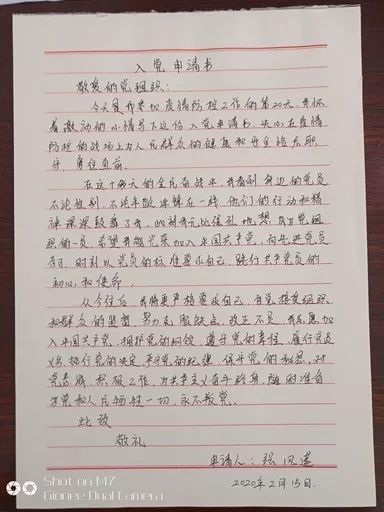 入党申请书
敬爱的党组织:
今天是我参加疫情防控工作的第20天,我怀
着激动的心情写下这份入党申请书,决心在疫情
防控的战场上为人民群众的健康和平安恪尽职
守、勇往直前。
在这个伟大的全民战役中,我看到身边的党员
不论性别、不论年龄冲锋在一线,他们的行动和精
神深深鼓舞了我,此刻我无比强烈地想成为党组
织的一员,希望早日光荣加入中国共产党,向先进党员
学习,时刻以党员的标准要求自己,践行共产党员的
初心和使命。
从今往后,我将更严格要求自己,自觉接受组织
和群众的监督,努力克服缺点,改正不足。我志愿加
入中国共产党,拥护党的纲领,遵守党的章程,履行党员
义务,执行党的决定,严守党的纪律,保守党的秘密,对
党忠诚,积极工作,为共产主义奋斗终身,随时准备
为党和人民牺牲一切,永不叛党。
此致
敬礼
申请人:张
2020年2月15日.
Shot on M7
Gionee Dual Camera